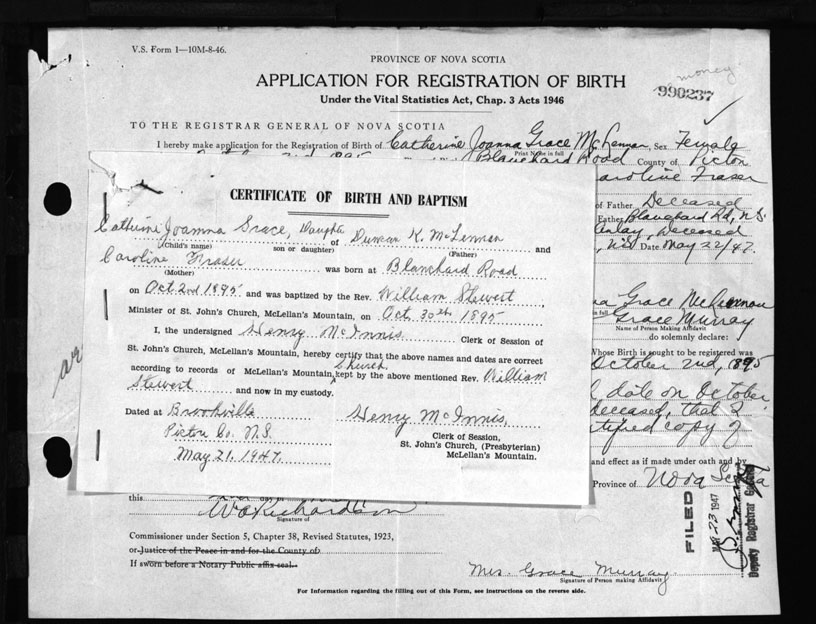 V.S. Form 1—10M-8-46.
PROVINCE OF NOVA SCOTIA
APPLICATION FOR REGISTRATION OF BIRTH
money
990237
Under the Vital Statistics Act, Chap. 3 Acts 1946
TO THE REGISTRAR GENERAL OF NOVA SCOTIA
I hereby make application for the Registration of Birth of Catherine Joanna Grace McLennan, Sex Female
Print Name in full
2nd 1895 Blanchard Road County of Pictou
Caroline Fraser
of Father Deceased
Father Blanchard Rd, N.S.
Deceased
N.S. Date May 22/47.
CERTIFICATE OF BIRTH AND BAPTISM
Catherine Joanna Grace, Daughter of Duncan K. McLennan and
(Child's name) son or daughter) (Father)
Caroline Fraser was born at Blanchard Road
(Mother)
on Oct 2nd 1895 and was baptized by the Rev. William Stewert,
Minister of St. John's Church, McLellan's Mountain, on Oct 30th 1895
I, the undersigned Henry McInnis Clerk of Session of
St. John's Church, McLellan's Mountain, hereby certify that the above names and dates are correct
according to records of McLellan's Mountain Church kept by the above mentioned Rev. William
Stewert and now in my custody.
Dated at Brookville Henry McInnis,
Pictou Co. N.S. Clerk of Session,
St. John's Church, (Presbyterian)
May 21. 1947. McLellan's Mountain.
Grace McLennan
in full
Grace Murray
Name of Person Making Affidavit
do solemnly declare:
Whose Birth is sought to be registered was
October 2nd, 1895
date on October
deceased, that I
certified copy of
and effect as if made under oath and
Province of Nova Scotia
this
W C Richardson
Signature of
Commissioner under Section 5, Chapter 38, Revised Statutes, 1923,
or Justice of the Peace in and for the County of
If sworn before a Notary Public affix seal.
Mrs. Grace Murray
Signature of Person making Affidavit
FILED
MAY 23 1947
Deputy Registrar General
For Information regarding the filling out of this Form, see instructions on the reverse side.